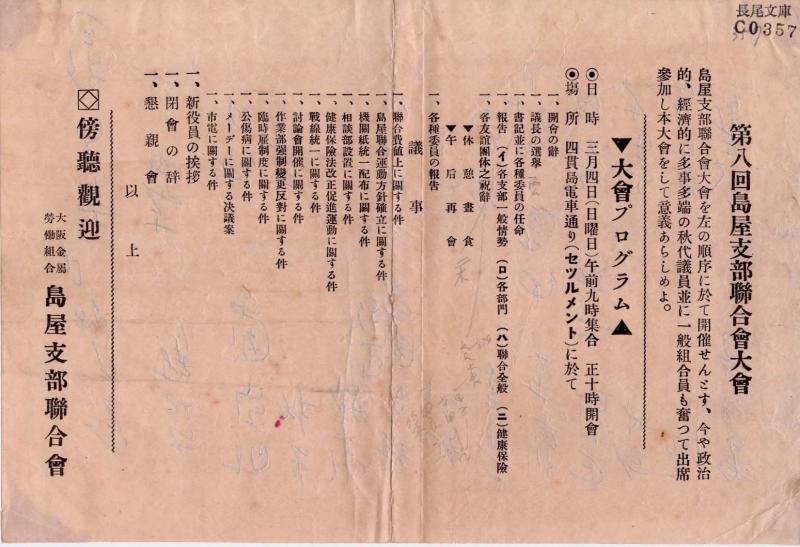 長尾文庫
C0357
第八回島屋支部聯合會大會
島屋支部聯合會大會を左の順序に於て開催せんとす、今や政治
的、經濟的に多事多端の秋代議員並に一般組合員も奮つて出席
參加し本大會をして意義あらしめよ。
▼大會プログラム▲
◉日 時 三月四日(日曜日)午前九時集合 正十時開會
◉場 所 四貫島電車通り(セツルメント)に於て
一、開會の辭
一、議長の選擧
一、書記並に各種委員の任命
一、報告(イ)各支部一般情勢 (ロ)各部門 (ハ)聯合全般 (ニ)健康保險
一、各友誼團体之祝辭
▼休憩晝食
▼午后再會
一、各種委員の報告
議事
一、聯合費値上に關する件
一、島屋聯合運動方針確立に關する件
一、機關紙統一配布に關する件
一、相談部設置に關する件
一、健康保險法改正促進運動に關する件
一、戰線統一に關する件
一、討論會開催に關する件
一、作業部强制變更反對に關する件
一、臨時雇制度に關する件
一、公傷病に關する件
一、メーデーに關する決議案
一、市電に關する件
一、新役員の挨拶
一、閉會の辞
一、懇親會
以上
傍聽觀迎
大阪金屬
勞働組合
島屋支部聯合會